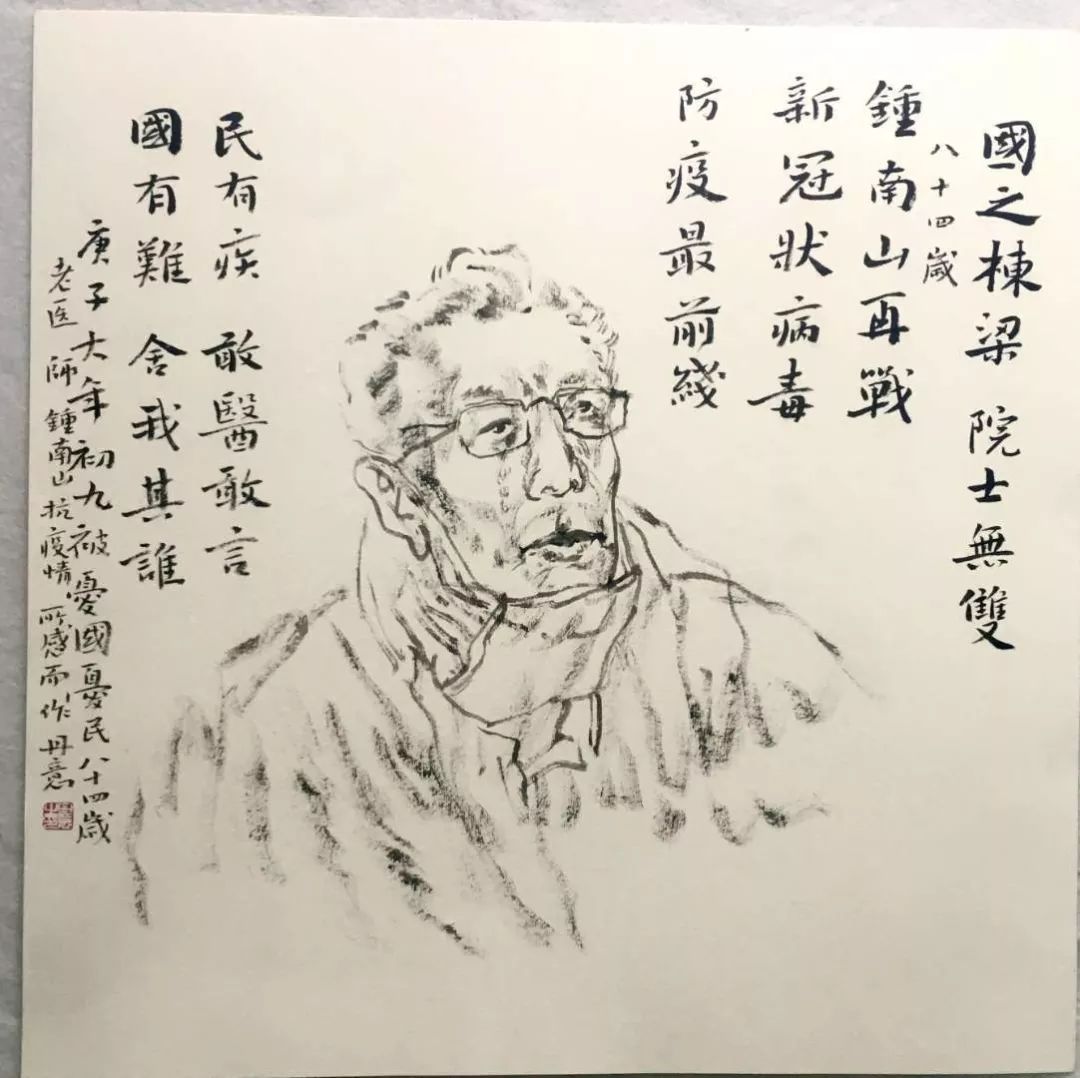 國之棟梁 院士無雙
八十四歲
鍾南山再戰
新冠狀病毒
防疫最前綫
民有疾 敢醫敢言
國有難 舍我其誰
庚子大年初九被憂國憂民八十四歲
老医師鍾南山抗疫情所感而作 丹意